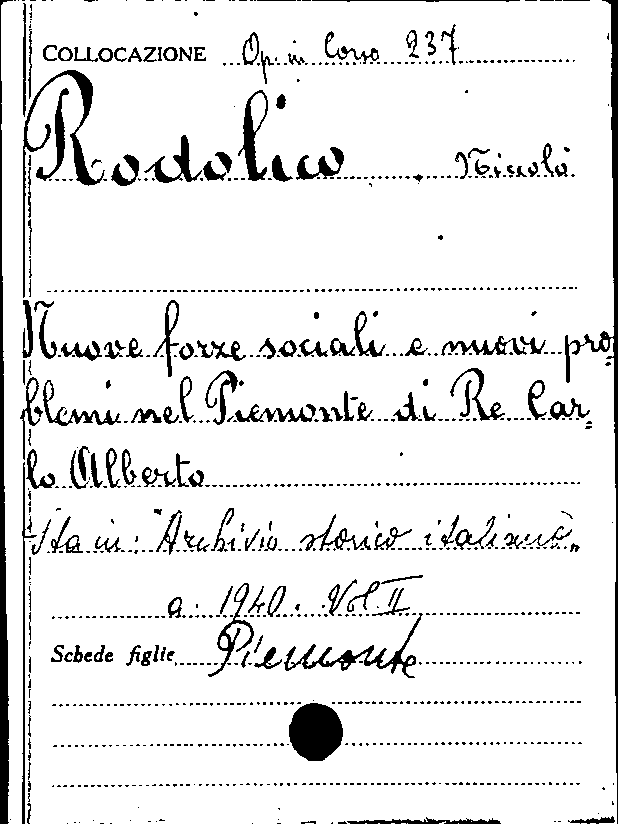 COLLOCAZIONE Op. in Corso 237
Rodolico, Niccolò
Nuove forze sociali e nuovi pro=
blemi nel Piemonte di Re Car=
lo Alberto
Sta in: "Archivio storico italiano„
a. 1940. Vol II
Schede figlie Piemonte